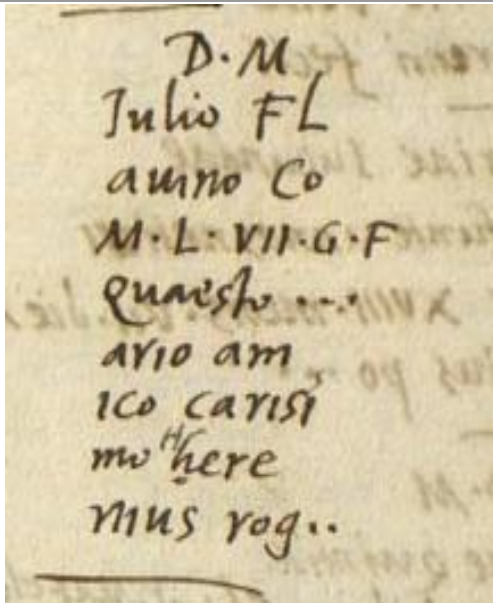 D·M
Iulio FL
auino Co
M·L·VII·G·F
quaesto ...
ario am
ico carisi
mo here
nius rog..